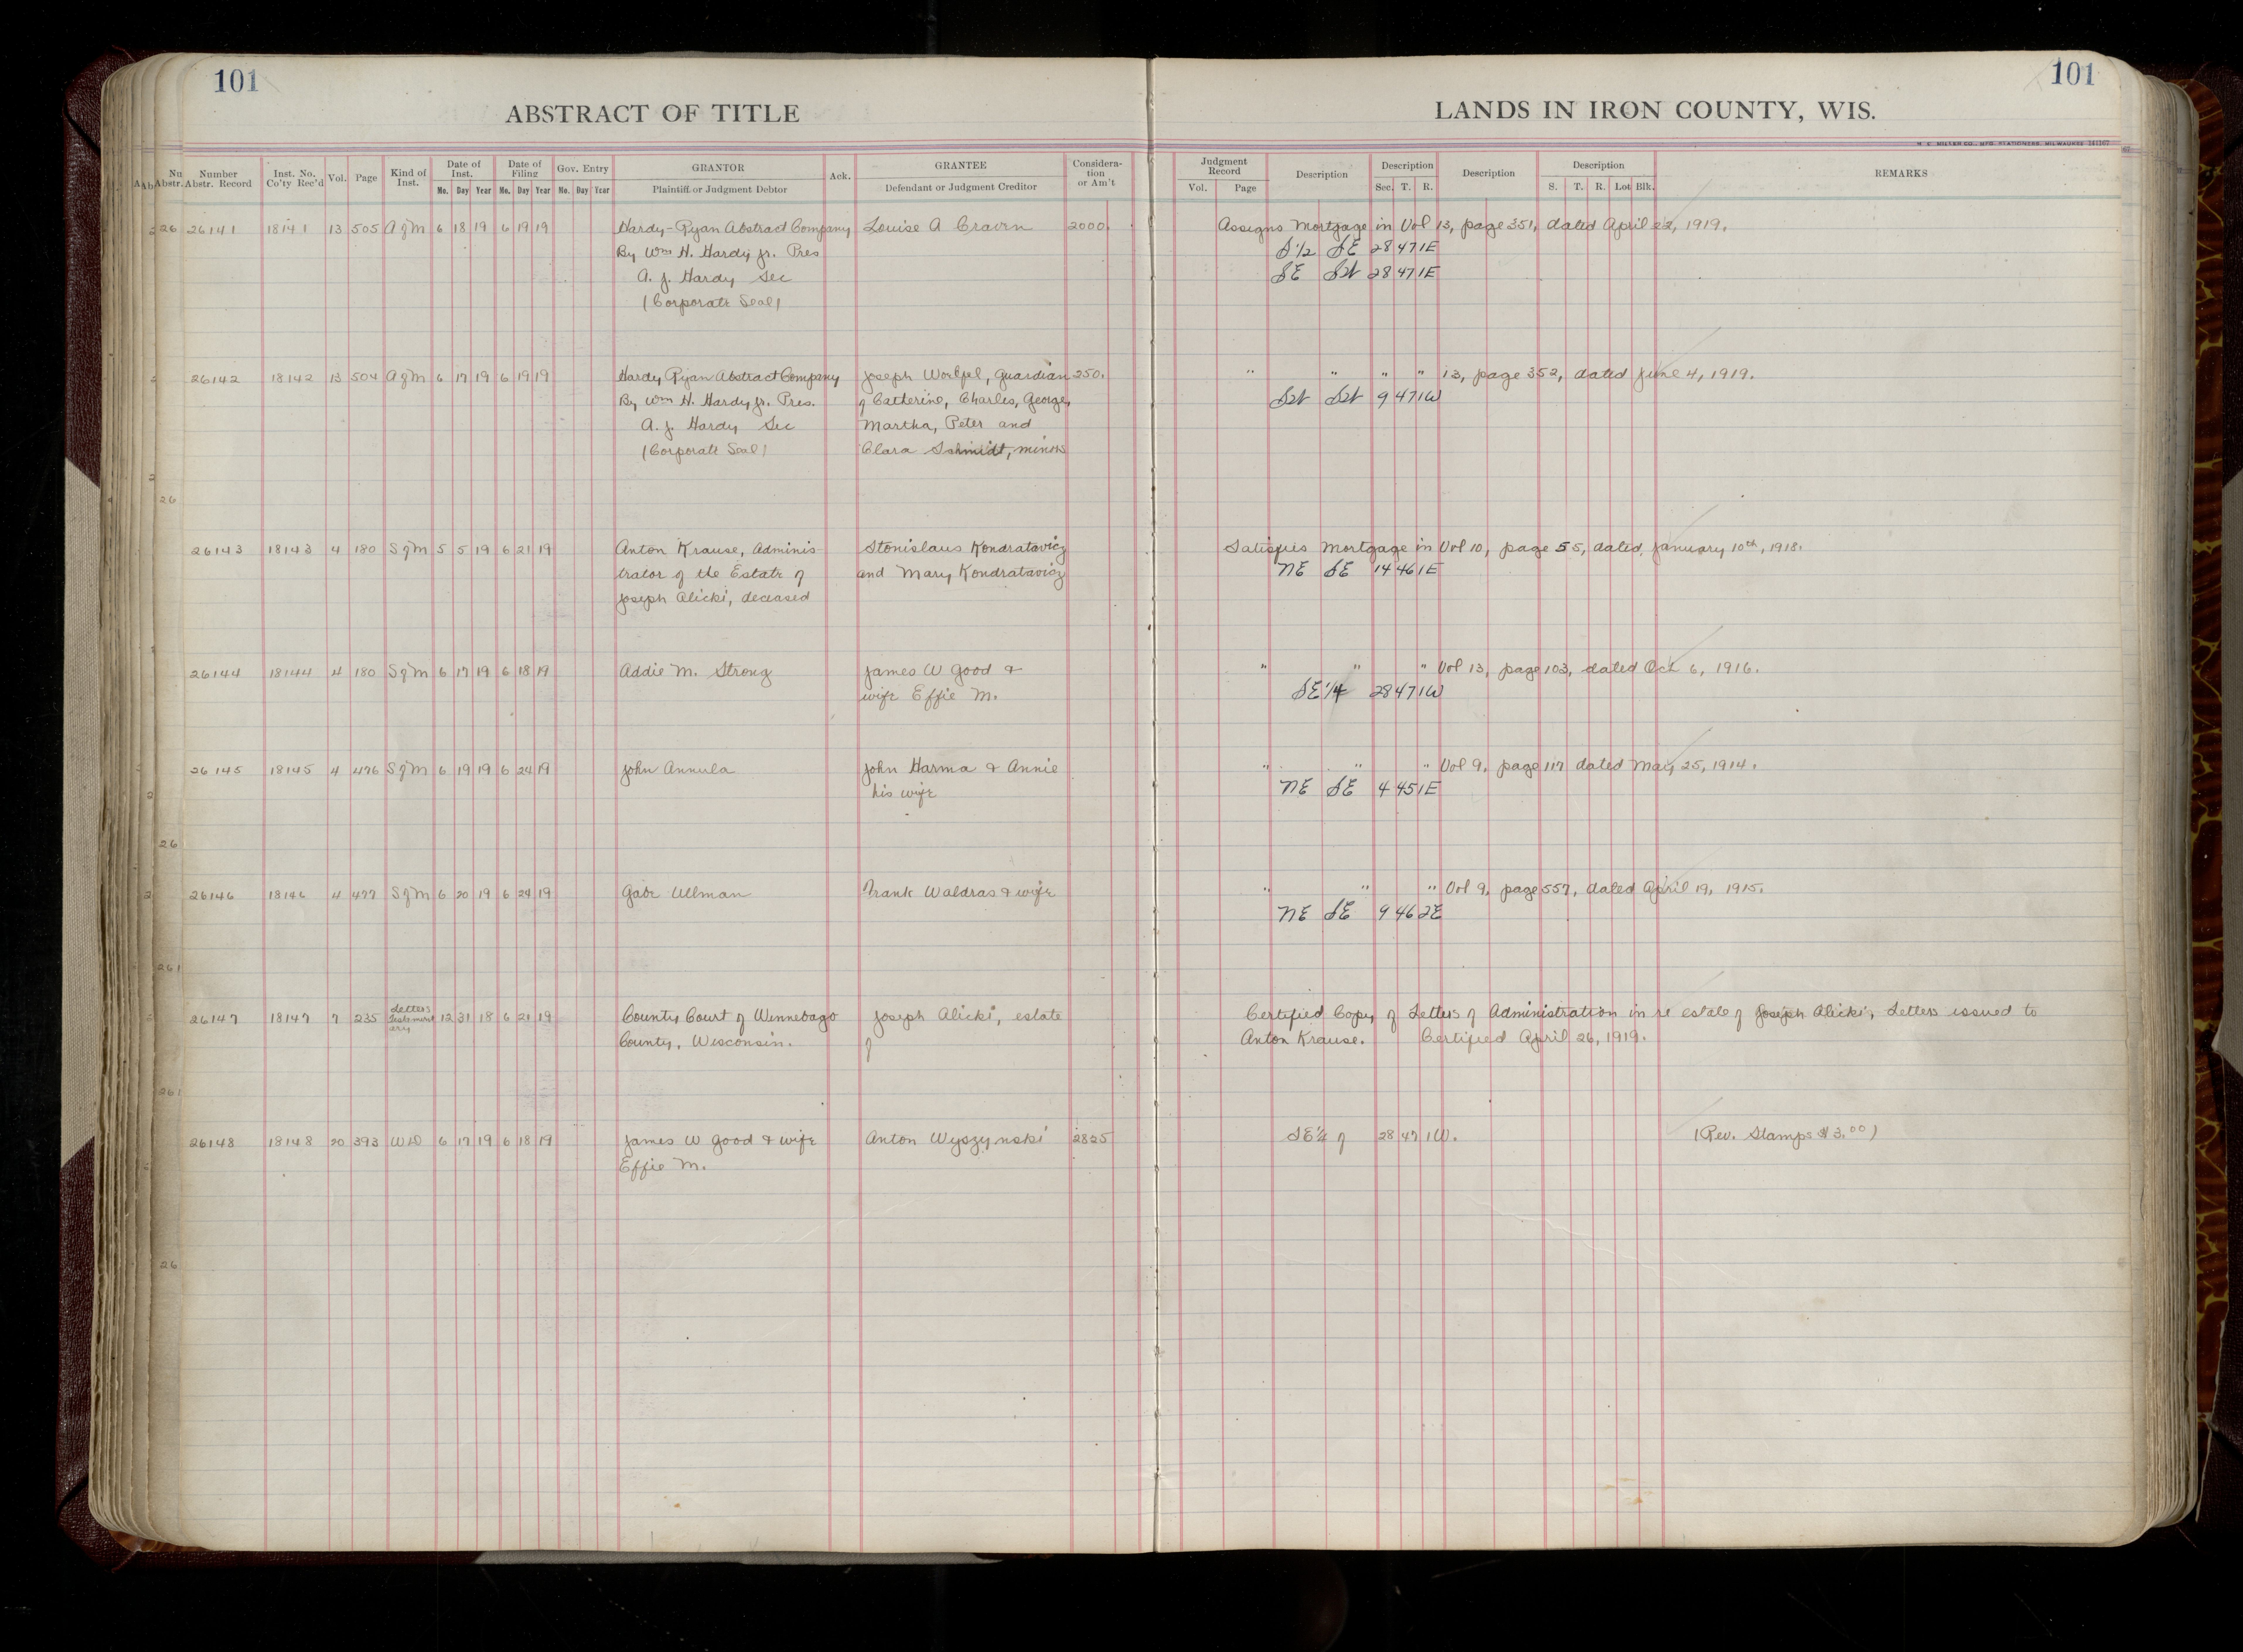 101
ABSTRACT OF TITLE
LANDS IN IRON COUNTY, WIS.
101
Number Abstr. Record Inst. No. Co'ty Rec'd Vol. Page Kind of Inst. Date of Inst. Mo. Day Year Date of Filing Mo. Day Year Gov. Entry Mo. Day Year GRANTOR Plaintiff or Judgment Debtor Ack. GRANTEE Defendant or Judgment Creditor Considera-tion or Am't Judgment Record Vol. Page Description Description Sec. T. R. Description Description S. T. R. Lot Blk. REMARKS
26141 18141 13 505 A of M 6 18 19 6 19 19 Hardy-Ryan Abstract Company Louise A Craven 2000. Assigns Mortgage in Vol 13, page 351, dated April 22, 1919.
By Wm H. Hardy Jr. Pres S1/2 SE 28 47 1E
A. J. Hardy Sec SE SW 28 47 1E
(Corporate Seal)
26142 18142 13 504 A of M 6 17 19 6 19 19 Hardy Ryan Abstract Company Joseph Woelfel, Guardian 250. " " " " 13, page 352, dated June 4, 1919.
By Wm H. Hardy Jr. Pres. of Catherine, Charles, George, SW SW 9 47 1W
A. J. Hardy Sec Martha, Peter and
(Corporate Seal) Clara Schmidt, minors
26143 18143 4 180 S of M 5 5 19 6 21 19 Anton Krause, Adminis- Stonislaus Kondratavicz Satisfies Mortgage in Vol 10, page 55, dated January 10th, 1918.
trator of the Estate of and Mary Kondratavicz NE SE 14 46 1E
Joseph Alicki, deceased
26144 18144 4 180 S of M 6 17 19 6 18 19 Addie M. Strong James W Good & " " " Vol 13, page 103, dated Oct 6, 1916.
wife Effie M. SE 1/4 28 47 1W
26145 18145 4 476 S of M 6 19 19 6 24 19 John Annula John Harma & Annie " " " Vol 9, page 117 dated May 25, 1914.
his wife NE SE 4 45 1E
26146 18146 4 477 S of M 6 20 19 6 24 19 Gabe Ullman Frank Waldras & wife " " " Vol 9, page 557, dated April 19, 1915.
NE SE 9 46 2E
26147 18147 7 235 Letters Testamentary 12 31 18 6 21 19 County Court of Winnebago Joseph Alicki, estate Certified Copy of Letters of Administration in re estate of Joseph Alicki, Letters issued to
County, Wisconsin. of Anton Krause. Certified April 26, 1919.
26148 18148 20 393 WD 6 17 19 6 18 19 James W Good & wife Anton Wyszynski 2825 SE 1/4 of 28 47 1W. (Rev. Stamps $3.00)
Effie M.